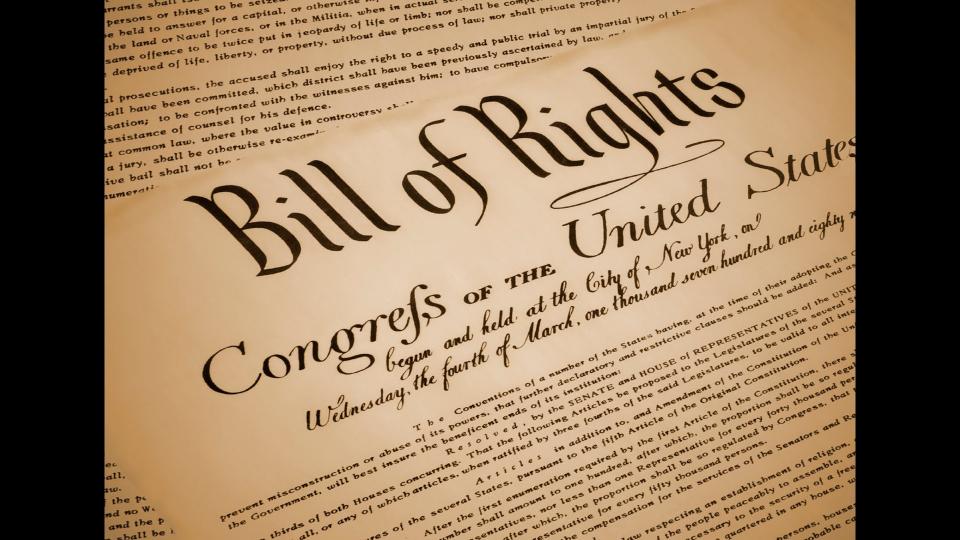 rrants shall
persons or things to be seized.
be held to answer for a capital, or otherwise
the land or Naval forces, or in the Militia, when in actual
same offence to be twice put in jeopardy of life or limb; nor shall be
deprived of life, liberty, or property, without due process of law; nor shall private property
l prosecutions, the accused shall enjoy the right to a speedy and public trial by an impartial jury of the
all have been committed, which district shall have been previously ascertained by law, and
sation; to be confronted with the witnesses against him; to have compulsor
ssistance of counsel for his defence.
t common law, where the value in controversy sh
a jury, shall be otherwise re-exami
ive bail shall not be
numerati
Bill of Rights
Congreſs OF THE United States
begun and held at the City of New York, on
Wednesday, the fourth of March, one thousand seven hundred and eighty n
The Conventions of a number of the States having, at the time of their adopting the C
prevent misconstruction or abuse of its powers, that further declaratory and restrictive clauses should be added: And as
the Government, will best insure the beneficent ends of its institution:
Resolved, by the SENATE and HOUSE of REPRESENTATIVES of the UNIT
thirds of both Houses concurring. That the following Articles be proposed to the Legislatures of the several S
all, or any of which articles, when ratified by three fourths of the said Legislatures, to be valid to all inte
Articles in addition to, and Amendment of the Constitution of the Un
res of the several States, pursuant to the fifth Article of the Original Constitution.
After the first enumeration required by the first Article of the Constitution, there s
number shall amount to one hundred, after which, the proportion shall be so regul
tatives, nor less than one Representative for every forty thousand per
after which, the proportion shall be so regulated by Congress, that
sentative for every fifty thousand persons.
compensation for the services of the Senators and Re
law respecting an establishment of religion,
of the people peaceably to assemble, an
cessary to the security of a free
quartered in any house, w
persons, house
robable ca
all,
of the p
nd no W
and the p
shall be